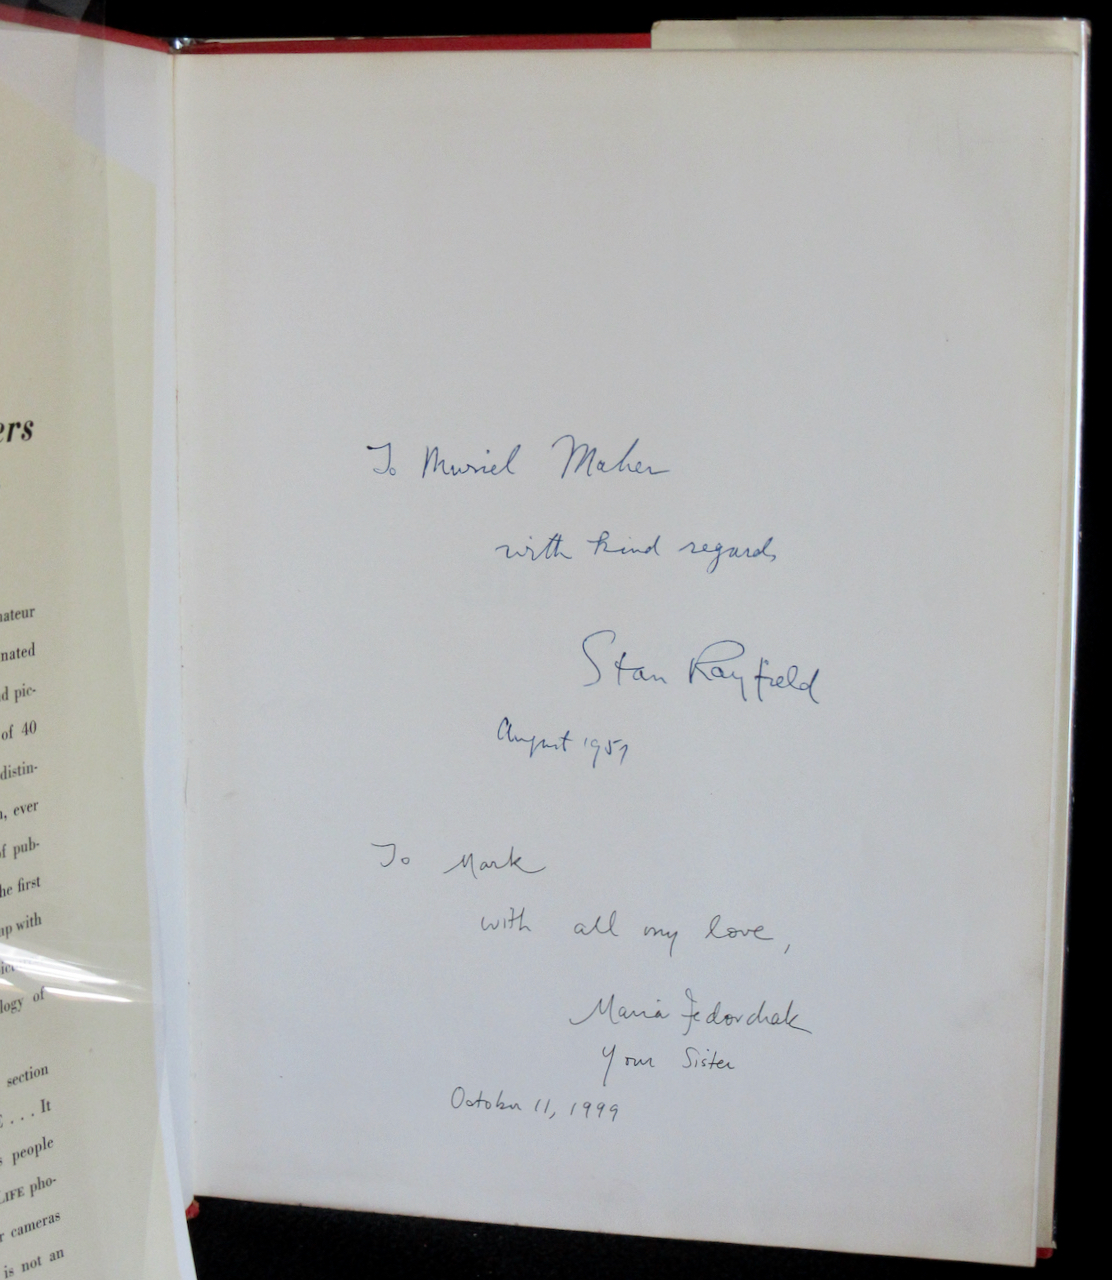 ers
nateur
nated
d pic-
of 40
distin-
, ever
of pub-
he first
up with
logy of
section
. . . It
people
LIFE pho-
r cameras
is not an
To Muriel Maher
with kind regards
Stan Rayfield
August 1957
To Mark
with all my love,
Maria Fedorchak
Your Sister
October 11, 1999